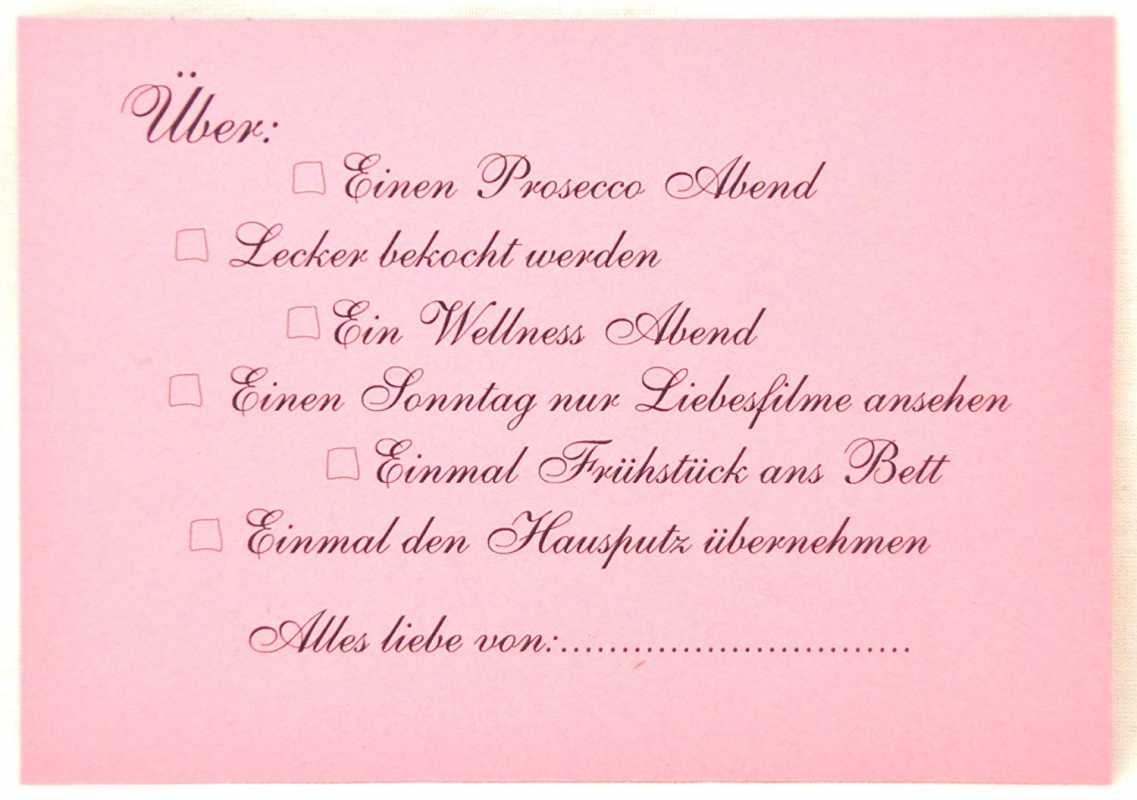 Über:
Einen Prosecco Abend
Lecker bekocht werden
Ein Wellness Abend
Einen Sonntag nur Liebesfilme ansehen
Einmal Frühstück ans Bett
Einmal den Hausputz übernehmen
Alles liebe von:.............................